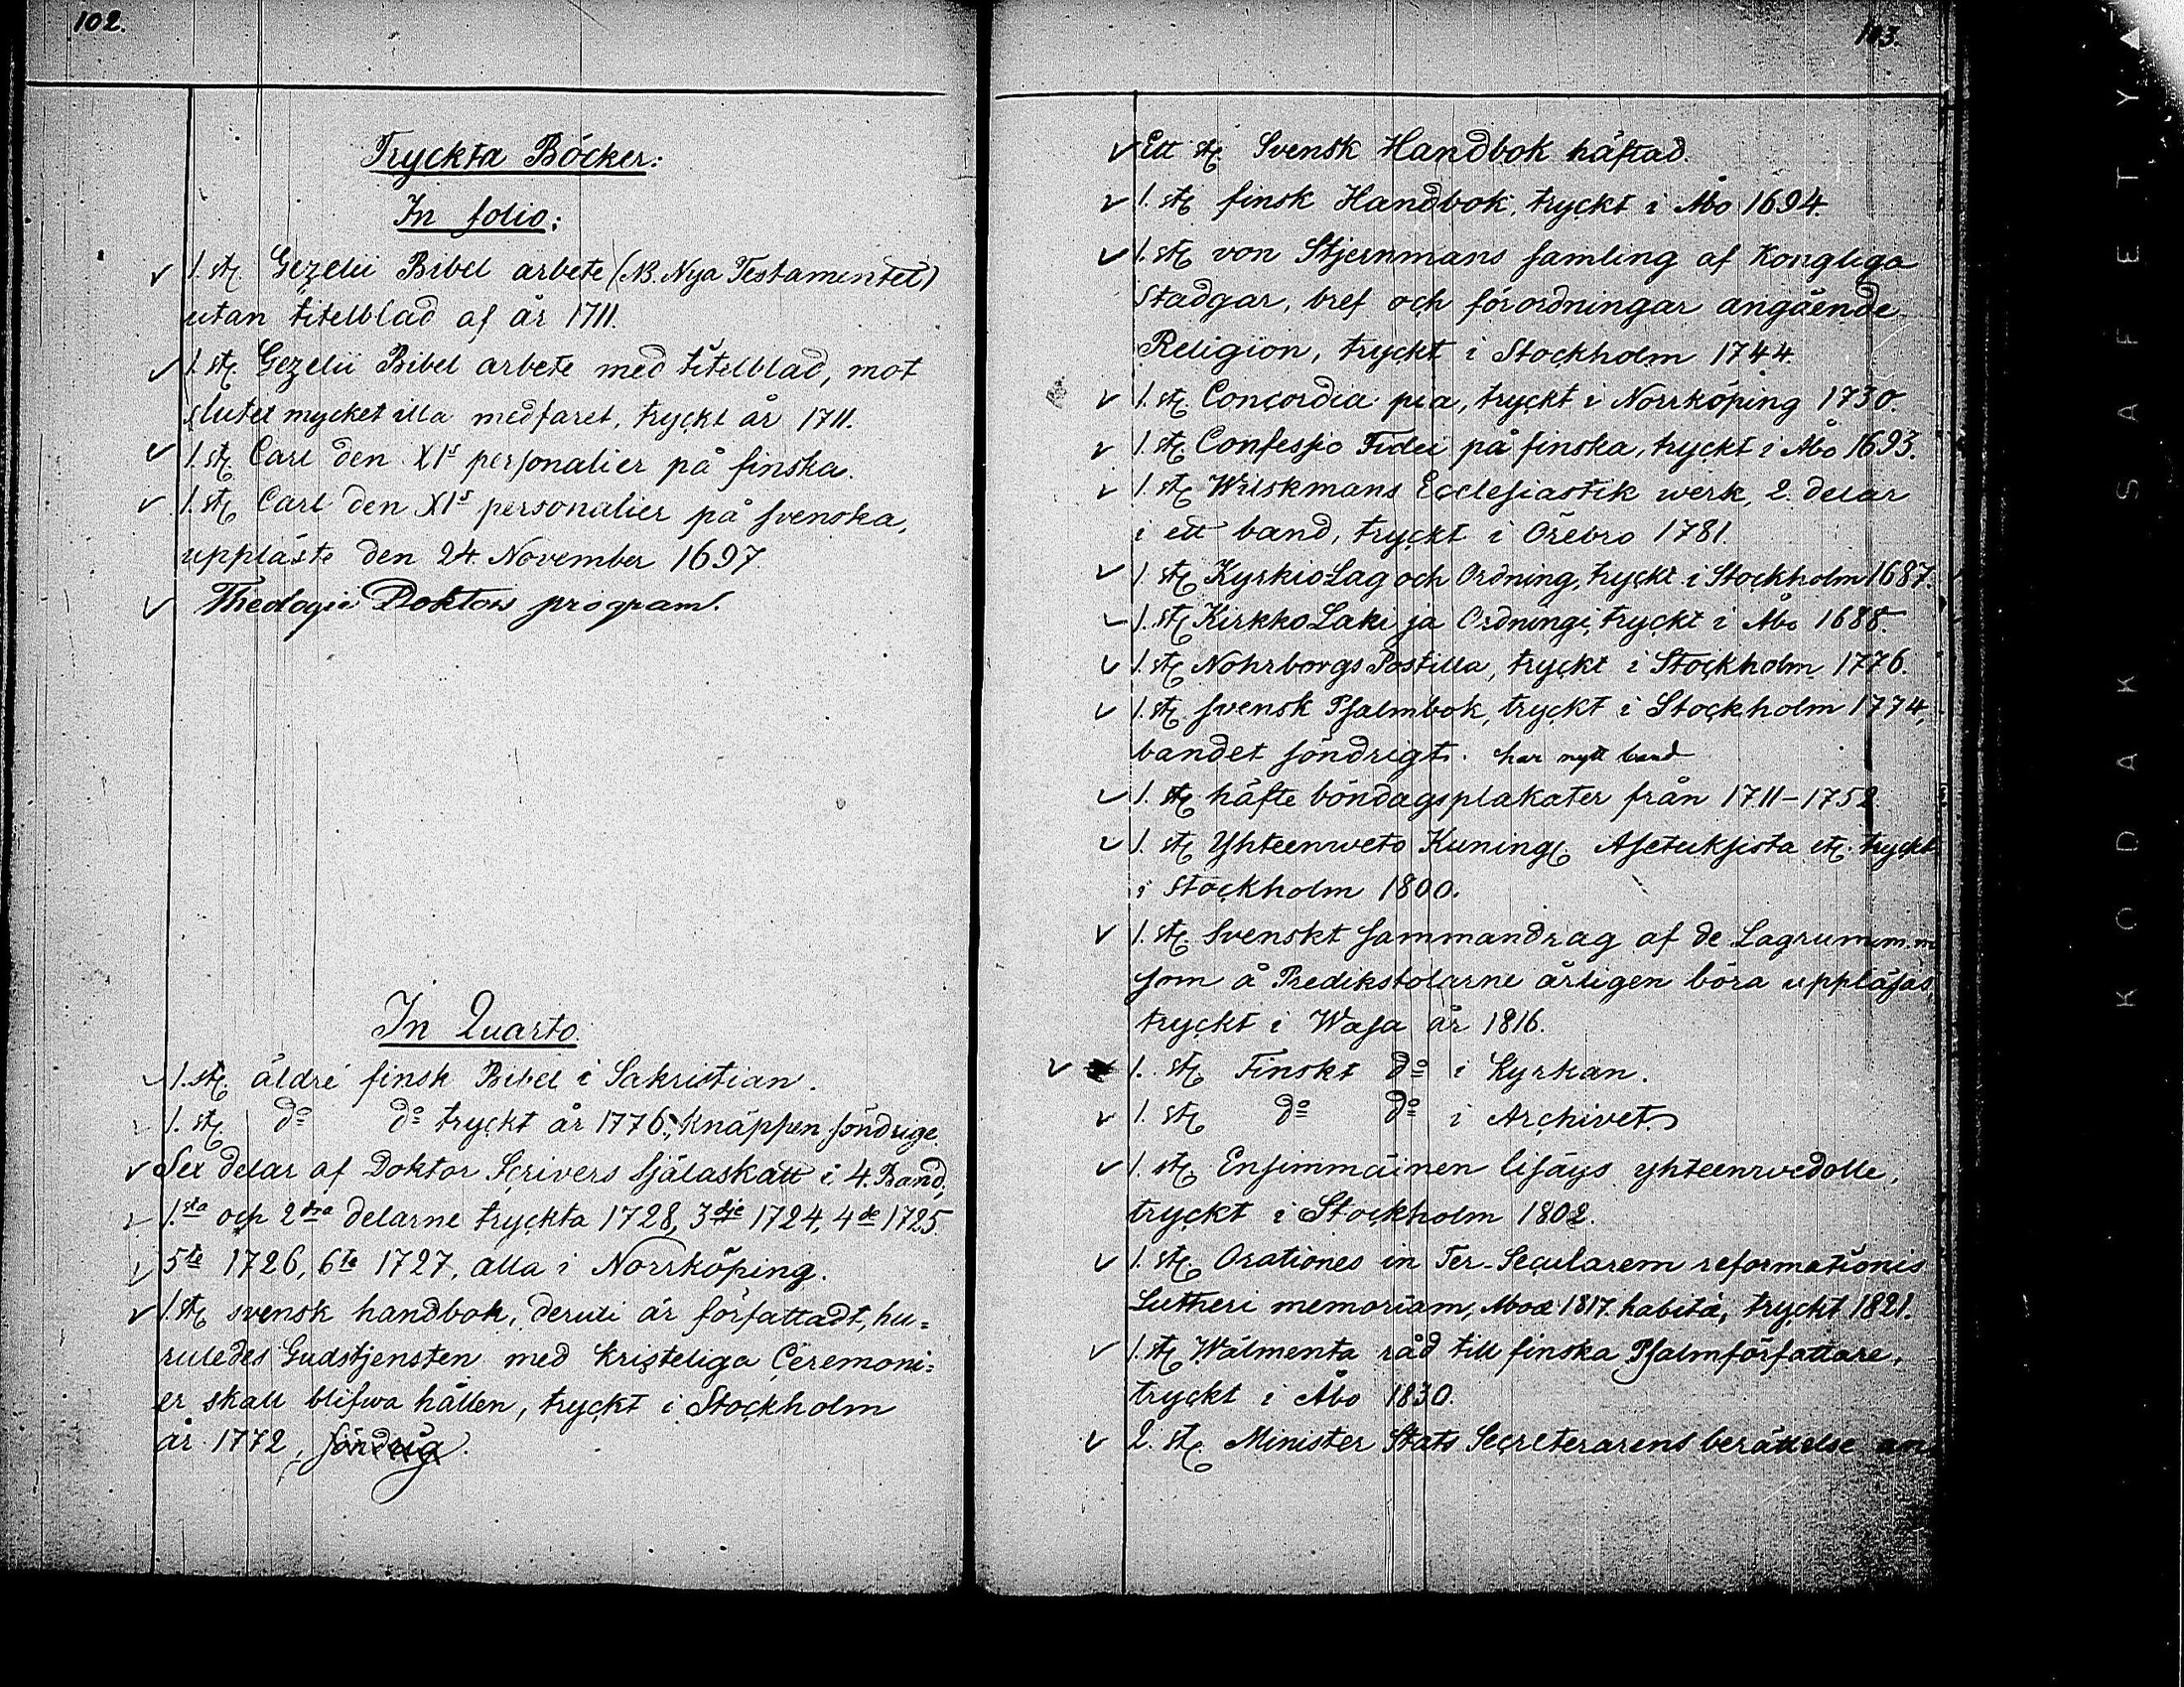 102.
Tryckta Böcker:
In folio:
1. st. Gezelii Bibel arbete (NB. Nya Testamentet)
utan titelblad af år 1711.
1. st. Gezelii Bibel arbete med titelblad, mot
slutet mycket illa medfaret, tryckt år 1711.
1. st. Carl den XIs personalier på finska.
1. st. Carl den XIs personalier på svenska,
uppläste den 24. November 1697.
Theologie Doktors program.
In Quarto.
1. st. äldre finsk Bibel i Sakristian.
1. st. do do tryckt år 1776, knäppen söndrige.
Sex delar af Doktor Scrivers Själaskatt i 4. Band,
1.sta och 2dra delarne tryckta 1728, 3dje 1724, 4de 1725
5te 1726, 6te 1727, alla i Norrköping.
1. st. svensk handbok, deruti är författadt, hu=
ruledes Gudstjensten med kristeliga Ceremoni=
er skall blifwa hållen, tryckt i Stockholm
år 1772, söndrig.
103.
Ett st. Svensk Handbok häftad.
1. st. finsk Handbok, tryckt i Åbo 1694.
1. st. von Stjernmans samling af Kongliga
Stadgar, bref och förordningar angående
Religion, tryckt i Stockholm 1744.
1. st. Concordia pia, tryckt i Norrköping 1730.
1. st. Confessio Fidei på finska, tryckt i Åbo 1693.
1. st. Wilskmans Ecclesiastik werk, 2. delar
i ett band, tryckt i Örebro 1781.
1. st. KyrkioLag och Ordning, tryckt i Stockholm 1687.
1. st. KirkkoLaki ja Ordningi, tryckt i Åbo 1688.
1. st. Nohrborgs Postilla, tryckt i Stockholm 1776.
1. st. svensk Psalmbok, tryckt i Stockholm 1774,
bandet söndrigt. har nytt band
1. st. häfte böndagsplakater från 1711-1752.
1. st. Yhteenweto Kuning. Asetuksista etc. tryckt
i Stockholm 1800.
1. st. Svenskt sammandrag af de Lagrum m.m
som å Predikstolarne årligen böra uppläsas,
tryckt i Wasa år 1816.
1. st. Finskt do i Kyrkan.
1. st. do do i Archivet.
1. st. Ensimmäinen lisäys yhteenwedolle,
tryckt i Stockholm 1802.
1. st. Orationes in Ter-Secularem reformationis
Lutheri memoriam, Aboæ 1817. habitæ, tryckt 1821.
1. st. Wälmenta råd till finska Psalmförfattare,
tryckt i Åbo 1830.
2. st. Minister Stats Secreterarens berättelse
KODAK SAFETY